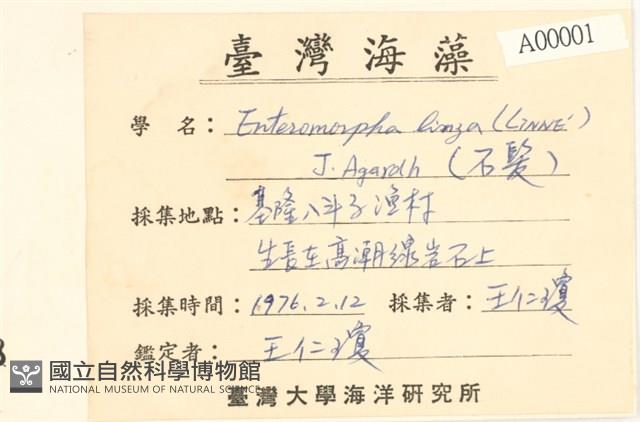 臺灣海藻
A00001
學 名： Enteromorpha linza (LINNÉ)
J. Agardh (石髮)
採集地點：基隆八斗子漁村
生長在高潮線岩石上
採集時間：1976.2.12 採集者：王仁瓊
鑑定者：王仁瓊
國立自然科學博物館
NATIONAL MUSEUM OF NATURAL SCIENCE
臺灣大學海洋研究所